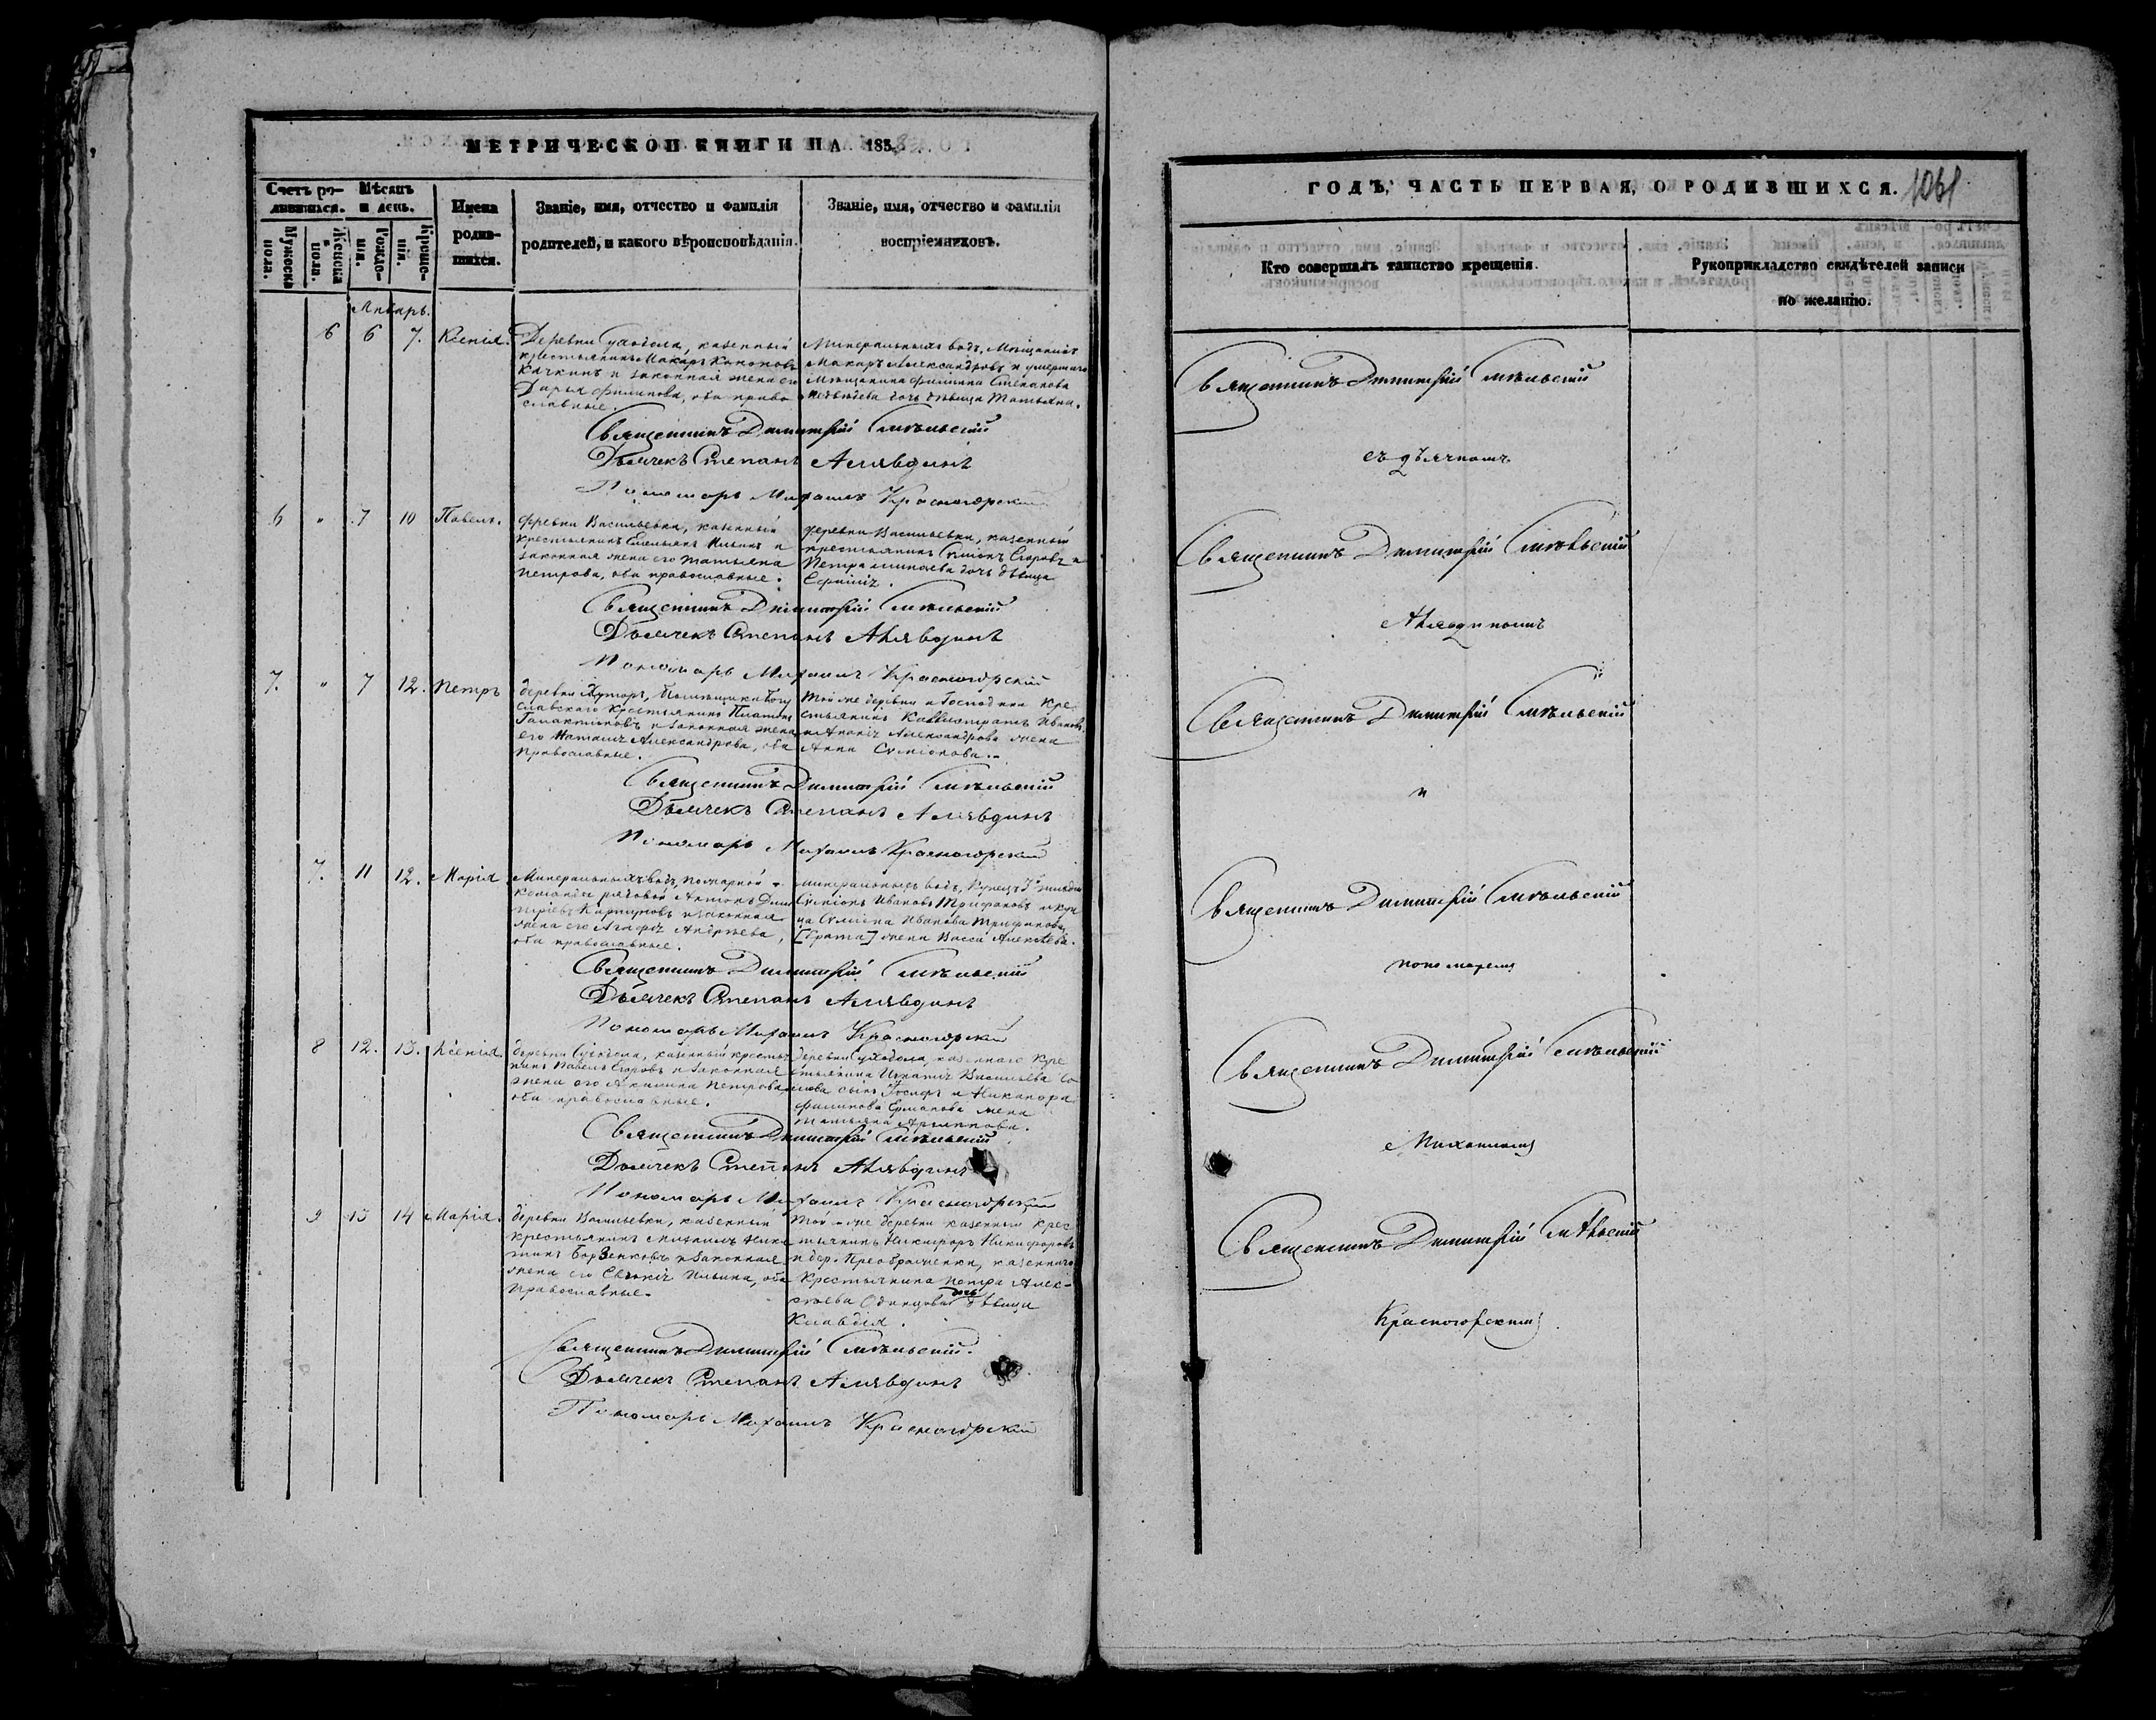 МЕТРИЧЕСКОЙ КНИГИ НА 1858
Счетъ ро-
дившихся.
Мѣсяцъ
и день.
Имена
родив-
шихся.
Званіе, имя, отчество и фамилія
родителей, и какого вѣроисповѣданія.
Званіе, имя, отчество и фамилія
воспріемниковъ.
Мужеска
пола.
Женска
пола.
Рожде-
нія.
Креще-
нія.
Январь.
6 6 7. Ксенія.
Деревни Суходола, казенный
крестьянинъ Макаръ Кононовъ
Качкинъ и законная жена его
Дарья Филипова, оба право
славные.
Минеральныхъ водъ, Мѣщанинъ
Макаръ Александровъ и умершаго
Мѣщанина Филипа Степанова
дочь дѣвица Татьяна.
Священникъ Димитрій Смѣльскій
Дьячекъ Степанъ Алявдинъ
Пономарь Михаилъ Красногорскій
6 " 7 10 Павелъ.
деревни Васильевки, казенный
крестьянинъ Емельянъ Ильинъ и
законная жена его Татьяна
Петрова, оба православные.
деревни Васильевки, казенный
крестьянинъ Симіонъ Егоровъ и
Петра Минаева дочь дѣвица
Священникъ Димитрій Смѣльскій
Дьячекъ Степанъ Алявдинъ
Пономарь Михаилъ Красногорскій
7. " 7 12. Петръ
деревни Хуторъ, Помѣщика Богу
славскаго Крестьянинъ Платонъ
Галактіоновъ и законная жена
его Наталія Александрова, оба
православные.
Той же деревни и Господина Кре
стьянинъ Каллистратъ Ивановъ
и Ананія Александрова жена
Анна Симіонова.
Священникъ Димитрій Смѣльскій
Дьячекъ Степанъ Алявдинъ
Пономарь Михаилъ Красногорскій
7. 11 12. Марія
Минеральныхъ водъ, пожарной
команды рядовой Антонъ Дими
тріевъ и законная
жена его Агафія Андреева,
оба православные.
минеральныхъ водъ, Купецъ 3й гильдіи
Симіонъ Ивановъ Трифановъ и куп
ца Симіона Иванова Трифанова
[брата] жена Васса Алексѣева.
Священникъ Димитрій Смѣльскій
Дьячекъ Степанъ Алявдинъ
Пономарь Михаилъ Красногорскій
8 12. 13. Ксенія
деревни Суходола, казенный крестья
нинъ Павелъ Егоровъ и законная
жена его Акилина Петрова,
оба православные.
деревни Суходола, казеннаго Кре
стьянина Игнатія Васильева Со
лова сынъ Іосифъ и Никанора
Филипова Ермакова жена
Татьяна Архипова.
Священникъ Димитрій Смѣльскій
Дьячекъ Степанъ Алявдинъ
Пономарь Михаилъ Красногорскій
9 13 14 Марія.
деревни Васильевки, казенный
крестьянинъ Михаилъ Ники
тинъ Борзенковъ и законная
жена его Евгенія Ильина, оба
православные.
Той-же деревни казенный крес
тьянинъ Никифоръ Никифоровъ
и дер. Преображенки, казеннаго
Крестьянина Петра Алек-
сѣева Одинцова дочь дѣвица
Клавдія.
Священникъ Димитрій Смѣльскій.
Дьячекъ Степанъ Алявдинъ
Пономарь Михаилъ Красногорскій
ГОДЪ, ЧАСТЬ ПЕРВАЯ, О РОДИВШИХСЯ. 1061
Кто совершалъ таинство крещенія.
Рукоприкладство свидѣтелей записи
по желанію.
Священникъ Димитрій Смѣльскій
съ дьячкомъ
Священникъ Димитрій Смѣльскій
Алявдинымъ
Священникъ Димитрій Смѣльскій
и
Священникъ Димитрій Смѣльскій
пономаремъ
Священникъ Димитрій Смѣльскій
Михаиломъ
Священникъ Димитрій Смѣльскій
Красногорскимъ